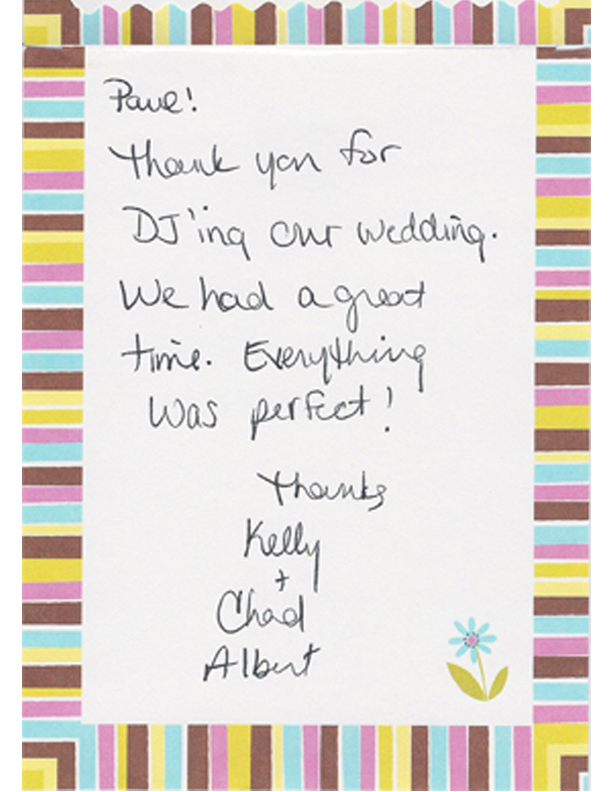 Thank you for
DJ'ing our wedding.
We had a great
time. Everything
was perfect!
Thanks
Kelly
+
Chad
Albert